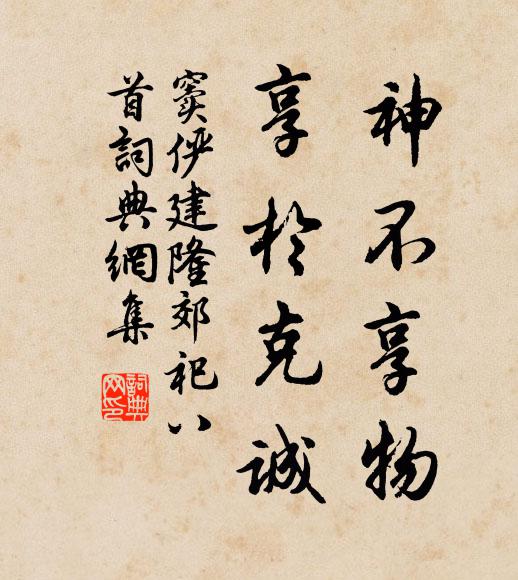 神不享物
享於克誠
竇儼建隆郊祀八
首詞典網集
詞典
网印